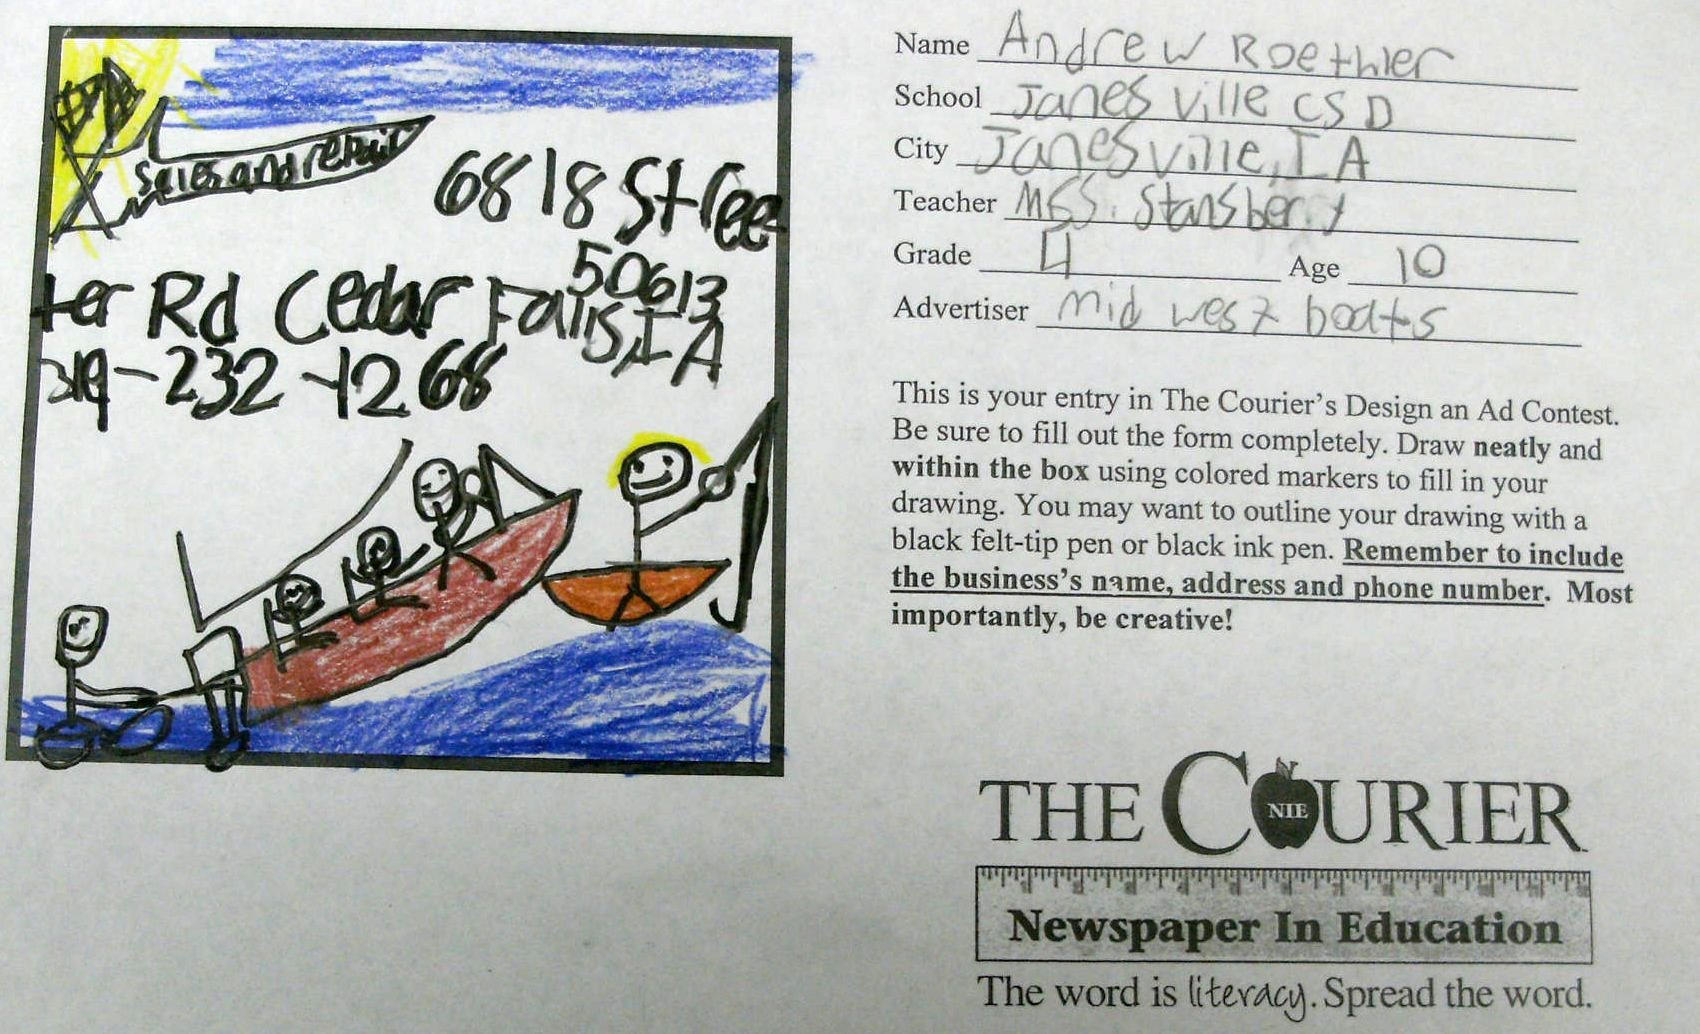 Sales and repair
6818 Stree
ter Rd Cedar Falls, IA
50613
319-232-1268
Name Andrew Roethler
School Janesville CSD
City Janesville, IA
Teacher Mss. Stansberry
Grade 4 Age 10
Advertiser Mid west boats
This is your entry in The Courier's Design an Ad Contest.
Be sure to fill out the form completely. Draw neatly and
within the box using colored markers to fill in your
drawing. You may want to outline your drawing with a
black felt-tip pen or black ink pen. Remember to include
the business's name, address and phone number. Most
importantly, be creative!
THE COURIER
NIE
Newspaper In Education
The word is literacy. Spread the word.